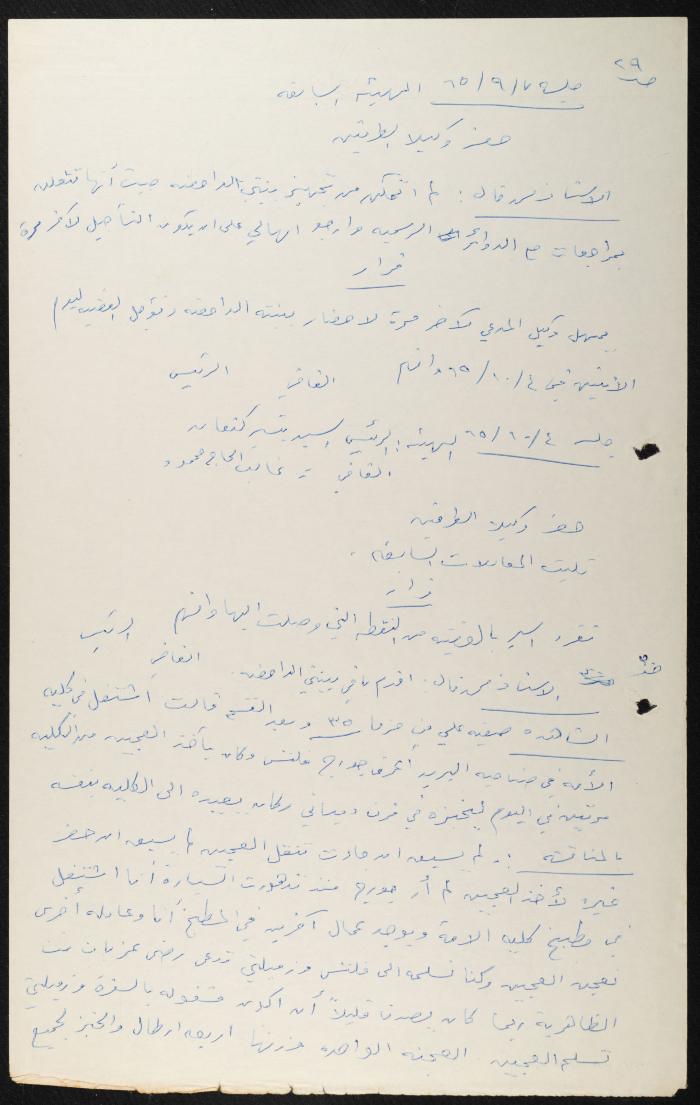 ص ٢٩
جلسة ٧/٩/٦٥ الهيئة السابقة
حضر وكيلا الطرفين
الاستاذ مرقال: لم اتمكن من تجهيز بينتي الداحضة حيث أنها تتعلق
بمراجعات مع الدوائر الرسمية وارجو امهالي على ان يكون التأجيل لآخر مرة
قرار
يمهل وكيل المدعي لآخر مرة لاحضار بينته الداحضة وتؤجل القضية ليوم
الأثنين في ٤/١٠/٦٥ وافهم القاضي الرئيس
جلسة ٤/١٠/٦٥ الهيئة: الرئيس السيد بشير كنعان
القاضي = غالب الحاج محمود
حضر وكيلا الطرفين
تليت المعاملات السابقة.
قرار
تقرر السير بالقضية من النقطة التي وصلت اليها وافهم القاضي الرئيس
الاستاذ مرقال: اقدم باقي بينتي الداحضة.
الشاهدة صفية علي من حزما ٣٥ وبعد القسم قالت اشتغل في كلية
الأمة في ضاحية البريد اعرف جورج فلنس وكان يأخذ العجين من الكلية
مرتين في اليوم ليخبزه في فرن وكان يعيده الى الكلية بنفسه
بالمناقشة: لم يسبق ان جاءت تنقل العجين لم يسبق ان حضر
غيره لأخذ العجين لم أر جورج منذ تدهورت السيارة أنا اشتغل
في مطبخ كلية الامة ويوجد عمال آخرين في المطبخ أنا وعاملة أخرى
نعجن العجين وكنا نسلمه الى فلنس وزميلتي تدعى رضى من بيت
الظاهرية ربما كان يصدف قليلاً أن اكون مشغولة بالسفرة وزميلتي
تسلم العجين العجنة الواحدة وزنها اربعة ارطال والخبز لجميع